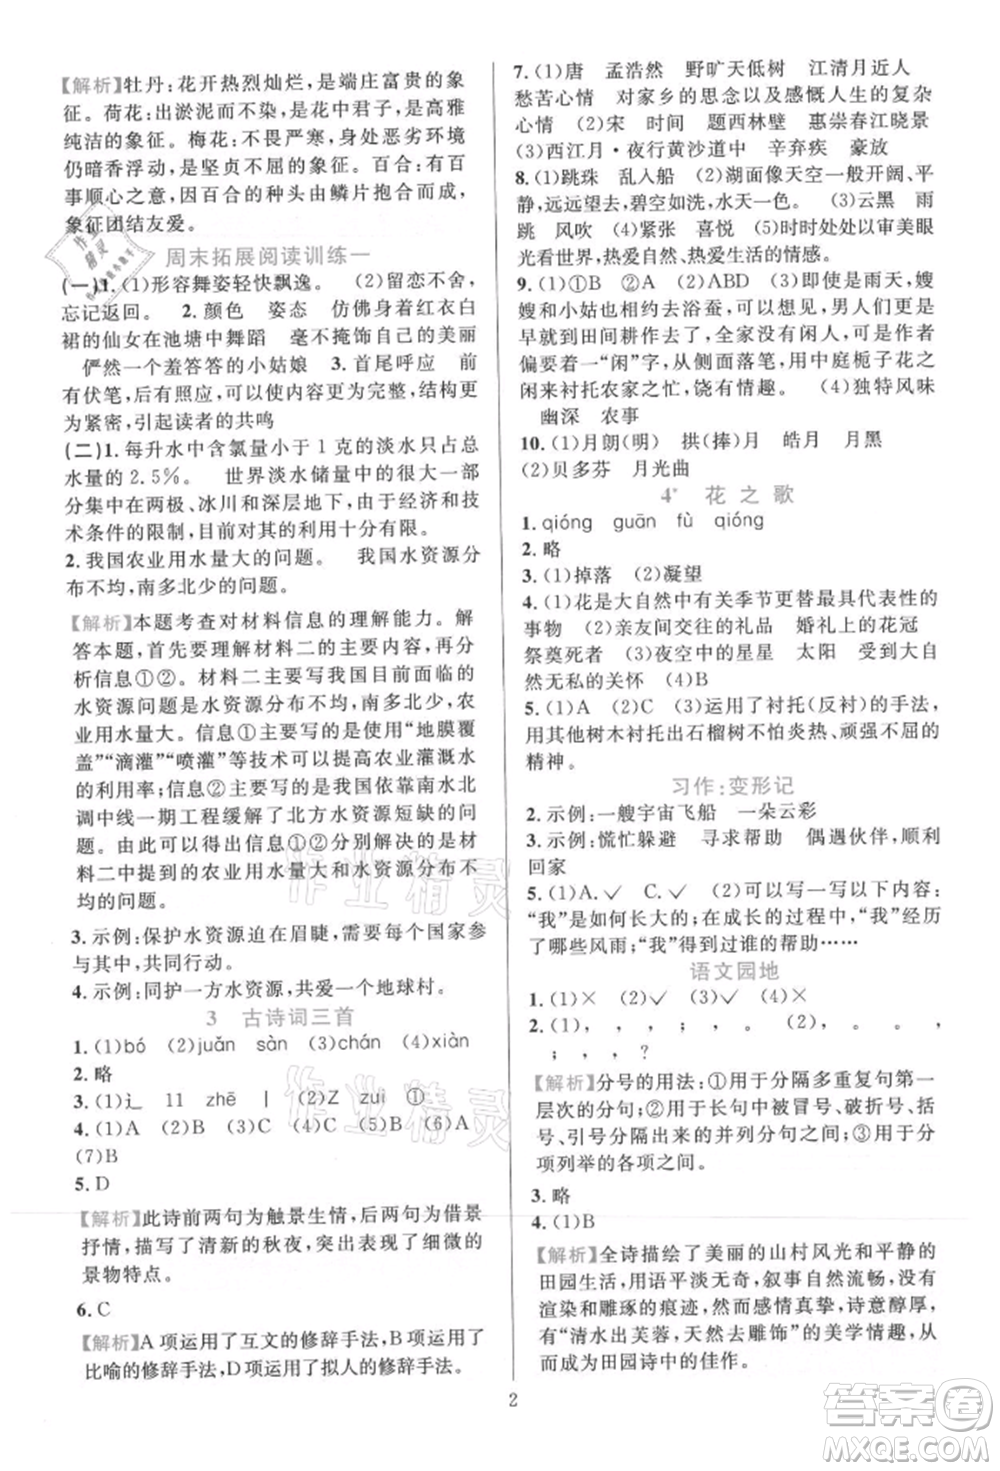 【解析】牡丹:花开热烈灿烂,是端庄富贵的象
征。荷花:出淤泥而不染,是高雅
纯洁的象征。梅花:不畏严寒,身处恶劣环境
仍暗香浮动,是坚贞不屈的象征。百合:有百
事顺心之意,因百合的种头由鳞片抱成,
象征团结友爱。
周末拓展阅读训练一
(一)1.(1)形容舞姿轻快飘逸。 (2)留恋不舍,
忘记返回。 2.颜色 姿态 仿佛身着红衣白
裙的仙女在池塘中舞蹈 毫不掩饰自己的美丽
俨然一个羞答答的小姑娘 3.首尾呼应 前
有伏笔,后有照应,行文更显严密完整,结构更
为紧密,引起读者的共鸣
(二)1.每升水中含氯量小于 1 克的淡水只占总
水量的 2.5%。 世界淡水储量中的大部
分集中在两极、冰川和深层地下,由于经济和技
术条件的限制,目前其的利用十分有限。
2.我国农业用水量大的问题。 我国水资源分
布不均,南多北少的问题。
【解析】本题考查对材料信息的理解能力。解
答本题,首先要理解材料二的主要内容,再分
析信息①②。材料二主要写我国目前面临的
水资源问题以及水资源分布不均,南多北少,农
业用水量大。信息①主要写的是用“地膜覆
盖”“滴灌”“喷灌”等技术可以提高农业灌溉水
的利用率;信息②主要写的是我国的南水北
调中线一期工程缓解了北方水资源短缺的问
题。因此,信息①②分别对应解决的是材
料二中的农业用水量大和水资源分布不
均的问题。
3.示例:保护水资源迫在眉睫,需要每个国家参
与其中,共同行动。
4.示例:同护一方水资源,共爱一个地球村。
3 古诗词三首
1.(1)bó (2)juǎn sàn (3)chán (4)xiàn
2.略
3.(1)辶 11 zhē | (2)Z zuì ①
4.(1)A (2)B (3)B (4)A (5)B (6)A
(7)B
5.D
【解析】此诗前两句为触景生情,后两句为借景
抒情,描写了清新的秋夜,突出表现了细微的
景物特点。
6.C
【解析】A项运用了互文的修辞手法,B项运用了
比喻的修辞手法,D项运用了拟人的修辞手法。
7.(1)唐 孟浩然 野旷天低树 江清月近人
愁苦心情 对家乡的思念以及感慨人生的复杂
心情 (2)宋 时间 题西林壁 惠崇春江晓景
(3)西江月·夜行黄沙道中 辛弃疾 豪放
8.(1)跳珠 乱入船 (2)湖面像天空一般开阔、平
静,天空如同水洗一般明净,水天一色。 (3)云黑 雨
跳 风吹 (4)紧张 喜悦 (5)时时处处以审美眼
光观察自然、热爱自然、热爱生活的情感。
9.(1)①B ②A (2)ABD (3)因为下雨天,嫂
嫂和小姑也相约去浴蚕,可以想见,男人们早就
早早到田间耕作去了,全家没有闲人,但诗中
偏要着一“闲”字,从侧面落笔,用中庭栀子花之
闲来衬托农家之忙,饶有情趣。 (4)独特风味
幽深 农事
10.(1)月朗(明) 拱(捧)月 皓月 月黑
(2)贝多芬 月光曲
4* 花之歌
1.qióng guān fù qióng
2.略
3.(1)掉落 (2)凝望
4.(1)花是大自然中有关季节更替最具代表性的
事物 (2)亲友间交往的礼品 婚礼上的花冠
祭奠死者 (3)夜空中的星星 太阳 大自
然无私的关怀
5.(1)A (2)C (3)运用了衬托(反衬)的手法,
用其他树木衬托出石榴树不怕炎热、不屈的
精神。
习作:变形记
2.示例:一艘宇宙飞船 一朵云彩
3.示例:慌忙躲避 寻求帮助 偶遇伙伴,顺利
回家
5.(1)A.✓ C.✓ (2)可以写一写以下内容:
“我”是如何长大的;在成长的过程中,“我”经历
了哪些风雨;“我”得到过谁的帮助……
语文园地
1.(1)× (2)✓ (3)✓ (4)×
2.(1), , ; , ; 。 (2), 。 。 ,
; , , ?
【解析】分号的用法:①用于分隔多重复句第一
层的分句;②用于长句中被
号分隔出来的并列分句之间;③用于分
项列举的各项之间。
3.略
4.(1)B
【解析】全诗描绘了美丽的山村风光和平静的
田园生活,用语平淡无奇,叙事自然流畅,没有
渲染和雕琢的痕迹,感情真挚,诗意醇厚,富
有“清水出芙蓉,天然去雕饰”的美学情趣,从
而成为田园诗中的佳作。
2
作业精灵
答案圈
MXQE.COM